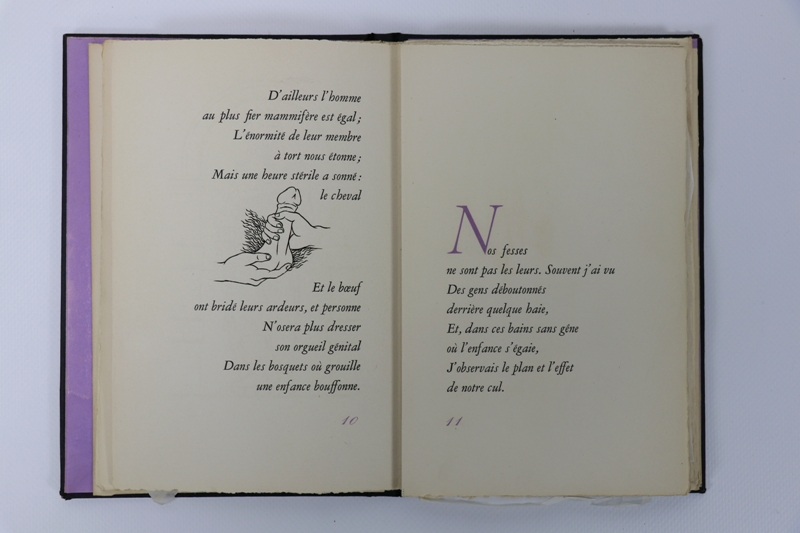 D'ailleurs l'homme
au plus fier mammifère est égal;
L'énormité de leur membre
à tort nous étonne;
Mais une heure stérile a sonné:
le cheval
Et le bœuf
ont bridé leurs ardeurs, et personne
N'osera plus dresser
son orgueil génital
Dans les bosquets où grouille
une enfance bouffonne.
10
Nos fesses
ne sont pas les leurs. Souvent j'ai vu
Des gens déboutonnés
derrière quelque haie,
Et, dans ces bains sans gêne
où l'enfance s'égaie,
J'observais le plan et l'effet
de notre cul.
11